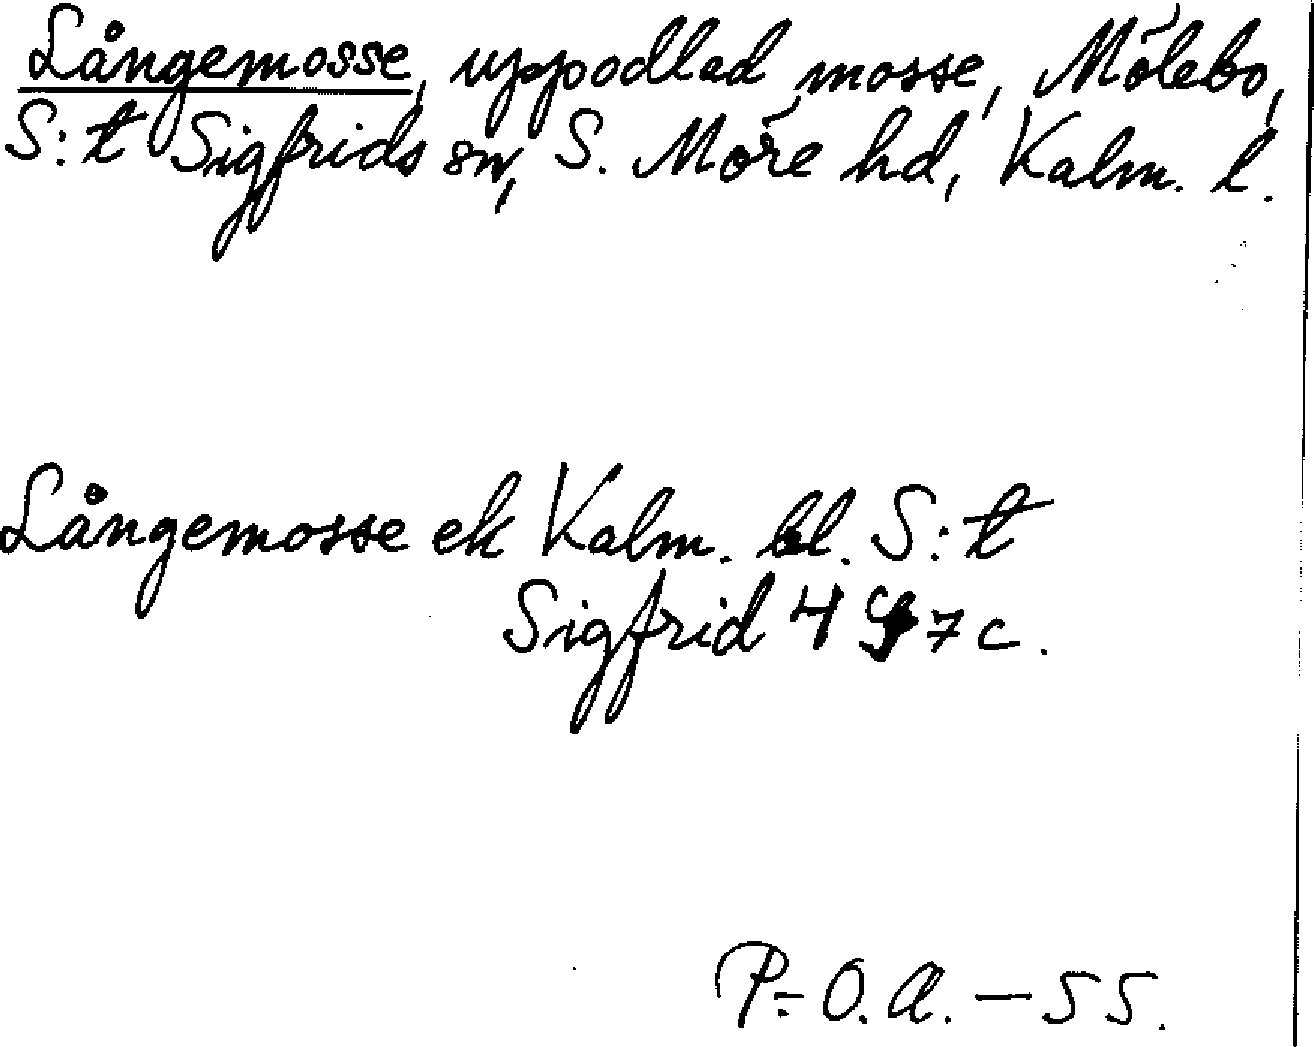 Långemosse, uppodlad mosse, Mölebo,
S:t Sigfrids sn, S. Möre hd, Kalm. l.
Långemosse ek Kalm. bl. S:t
Sigfrid 4 7 c.
P.-O. A. – 55.